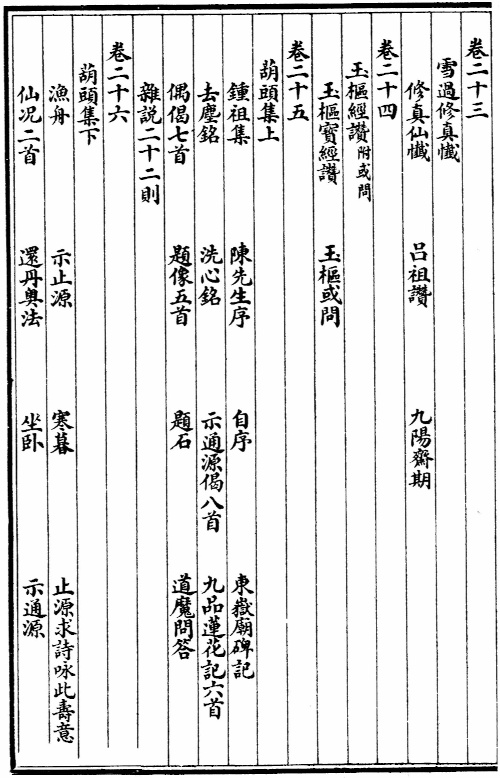 卷二十三
雪過修真懺
修真仙懺 呂祖讚 九陽齋期
卷二十四
玉樞經讚附或問
玉樞寶經讚 玉樞或問
卷二十五
葫頭集上
鍾祖集 陳先生序 自序 東嶽廟碑記
去塵銘 洗心銘 示通源偈八首 九品蓮花記六首
偶偈七首 題像五首 題石 道魔問答
雜説二十二則
卷二十六
葫頭集下
漁舟 示止源 寒暮 止源求詩咏此壽意
仙况二首 還丹奧法 坐卧 示通源